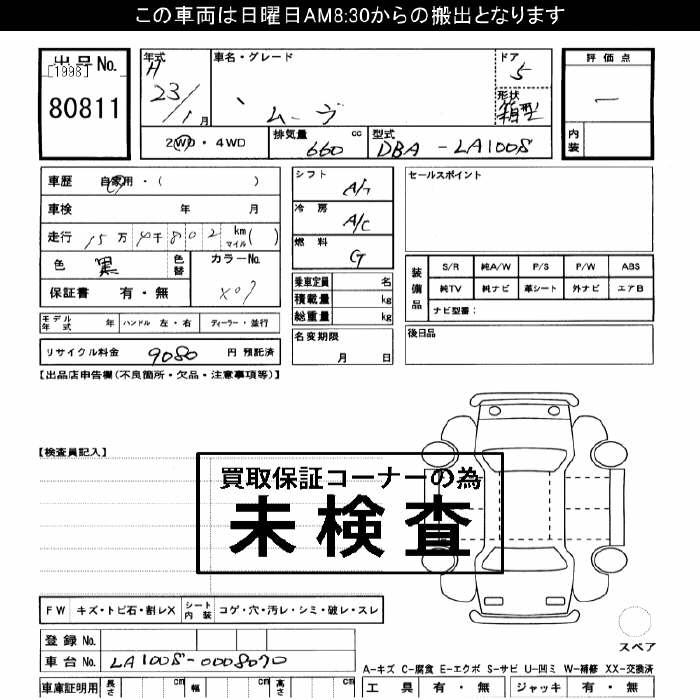 この車両は日曜日AM8:30からの搬出となります
出品No.
[1998]
80811
年式
H
23/1月
車名・グレード
ムーヴ
ドア
5
形状
箱型
評価点
―
内装
2WD・4WD
排気量 cc
660
型式
DBA-LA100S
車歴 自家用・( )
車検 年 月
走行 15万4千802 km マイル( )
色 黒 色替
カラーNo.
X07
保証書 有・無
モデル年式 年 ハンドル 左・右 ディーラー・並行
リサイクル料金 9080 円 預託済
シフト
A/T
冷房
A/C
燃料
G
乗車定員 名
積載量 kg
総重量 kg
名変期限
月 日
セールスポイント
装備品
S/R 純A/W P/S P/W ABS
純TV 純ナビ 革シート 外ナビ エアB
ナビ型番:
後日品
【出品店申告欄(不良箇所・欠品・注意事項等)】
【検査員記入】
買取保証コーナーの為
未検査
FW キズ・トビ石・割レX シート内装 コゲ・穴・汚レ・シミ・破レ・スレ
登録No.
車台No. LA100S-0008070
車庫証明用 長さ cm 幅 cm 高さ cm
スペア
A-キズ C-腐食 E-エクボ S-サビ U-凹ミ W-補修 XX-交換済
工具 有・無 ジャッキ 有・無